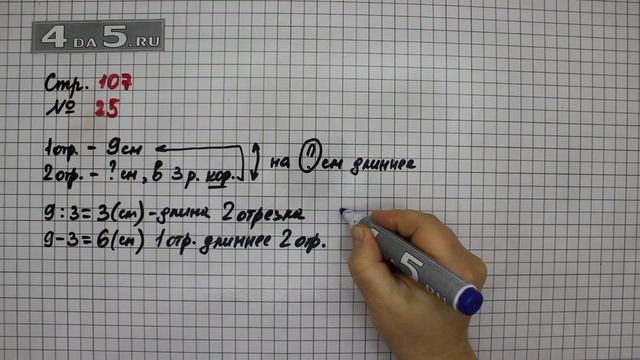 4 DA 5.RU
Стр. 107
№ 25
1 отр. - 9 см
2 отр. - ? см, в 3 р. кор.
на ? см длиннее
9 : 3 = 3 (см) - длина 2 отрезка
9 - 3 = 6 (см) 1 отр. длиннее 2 отр.